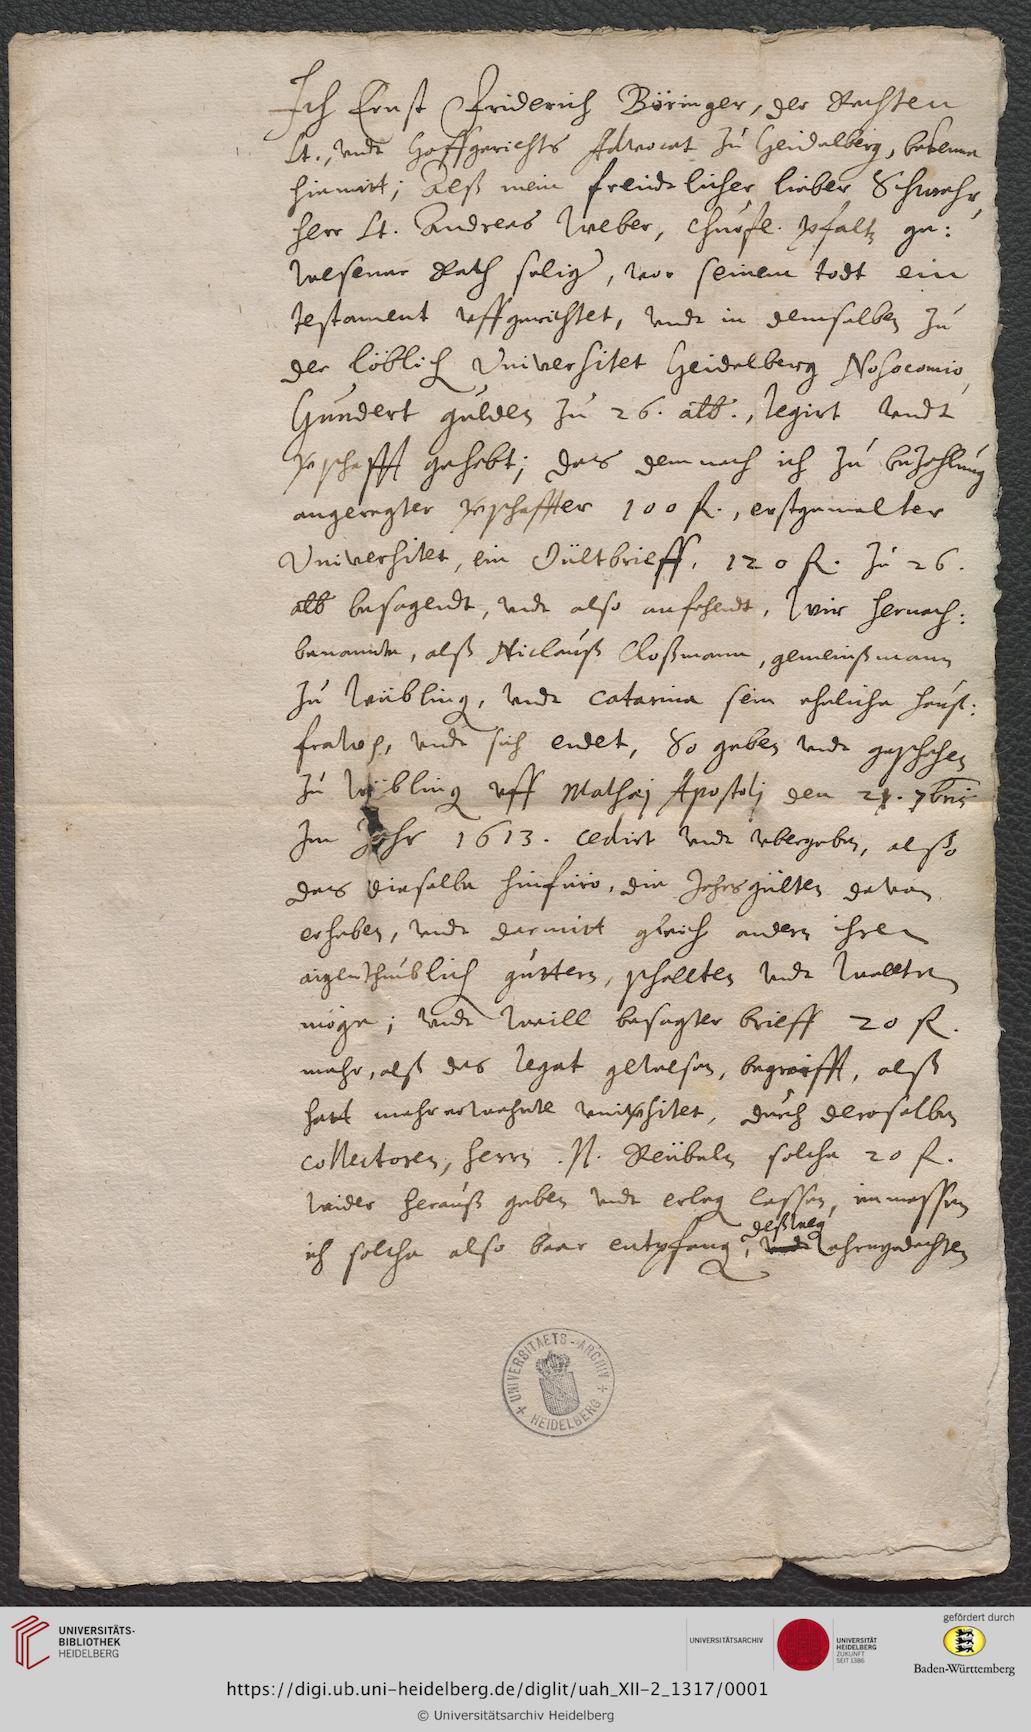 Ich Ernst Friderich Böringer, der Rechten
Lt., vndt Hoffgerichts Advocat zu Heidelberg, bekenne
hiemitt; Alß mein freündtlicher lieber Schwehr,
herr Lt. Andreas Weber, Churfl. Pfaltz ge:
wesener Rath selig, vor seinem todt ein
testament vffgerichtet, vndt in demselben zu
der löblich Vniversitet Heidelberg Nosocomio,
Hundert gulden zu 26. alb., legirt vndt
verschafft gehabt; das demnach ich zu bezahlung
angeregter verschaffter 100 fl., erstgemelter
Vniversitet, ein Gültbrieff, 120 fl. zu 26.
alb besagendt, vndt also anfehendt, Wir hernach:
benante, alß Niclauß Cloßmann, gemeinßmann
zu Wiblingen, vndt Catarina sein eheliche hauß:
fraw, vndt sich endet, So geben vndt geschehen
zu Wiblingen vff Mathej Apostolj den 21. 7bris
Im Jahr 1613. cedirt vndt vbergeben, also
das dieselbe hinfüro, die Jahrsgülten davon
erheben, vndt darmitt gleich andern ihren
aigenthumblich güttern, schallten vndt wallten
möge; vndt weill besagter brieff 20 fl.
mehr, alß das legat gewesen, begreifft, alß
hatt mehrerwehnte vniversitet, durch deroselben
collectoren, herrn N. Reübeln solche 20 fl.
wider herauß geben vndt erleg lassen, immassen
ich solche also baar entpfang, deßweg ehrngedachten
UNIVERSITAETS-ARCHIV
HEIDELBERG
UNIVERSITÄTS-
BIBLIOTHEK
HEIDELBERG
UNIVERSITÄTSARCHIV
UNIVERSITÄT
HEIDELBERG
ZUKUNFT
SEIT 1386
gefördert durch
Baden-Württemberg
https://digi.ub.uni-heidelberg.de/diglit/uah_XII-2_1317/0001
© Universitätsarchiv Heidelberg